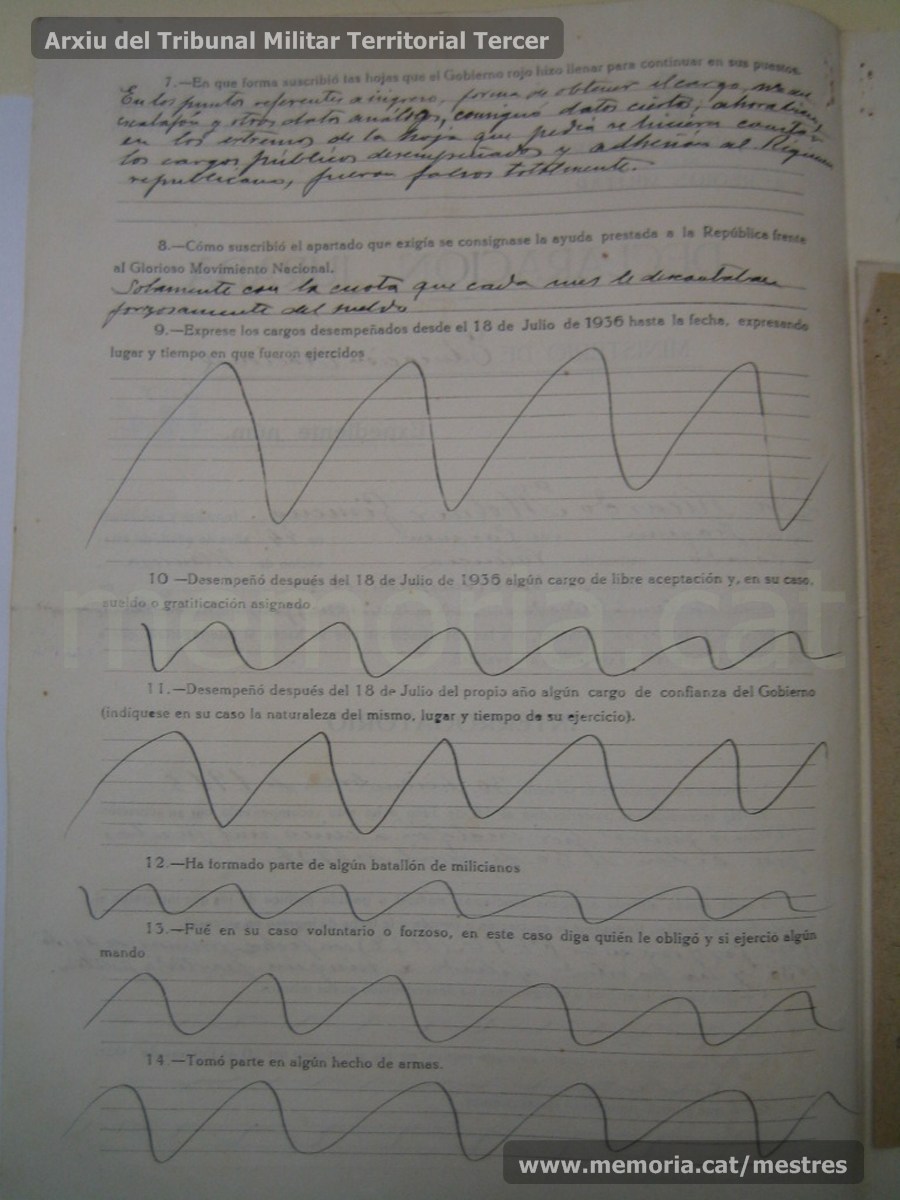 Arxiu del Tribunal Militar Territorial Tercer
7.—En que forma suscribió las hojas que el Gobierno rojo hizo llenar para continuar en sus puestos.
En los puntos referentes a ingreso, forma de obtener el cargo,
escalafón y otros datos análogos, consignó datos ciertos, ahora bien,
en los extremos de la hoja que pedía se hiciera constar
los cargos públicos desempeñados y adhesión al Régimen
republicano, fueron falsos totalmente.
8.—Cómo suscribió el apartado que exigía se consignase la ayuda prestada a la República frente
al Glorioso Movimiento Nacional.
Solamente con la cuota que cada mes le descontaban
forzosamente del sueldo
9.—Exprese los cargos desempeñados desde el 18 de Julio de 1936 hasta la fecha, expresando
lugar y tiempo en que fueron ejercidos
10 —Desempeñó después del 18 de Julio de 1936 algún cargo de libre aceptación y, en su caso,
sueldo o gratificación asignado
memoria.cat
11.—Desempeñó después del 18 de Julio del propio año algún cargo de confianza del Gobierno
(indíquese en su caso la naturaleza del mismo, lugar y tiempo de su ejercicio).
12.—Ha formado parte de algún batallón de milicianos
13.—Fué en su caso voluntario o forzoso, en este caso diga quién le obligó y si ejerció algún
mando
14.—Tomó parte en algún hecho de armas.
www.memoria.cat/mestres